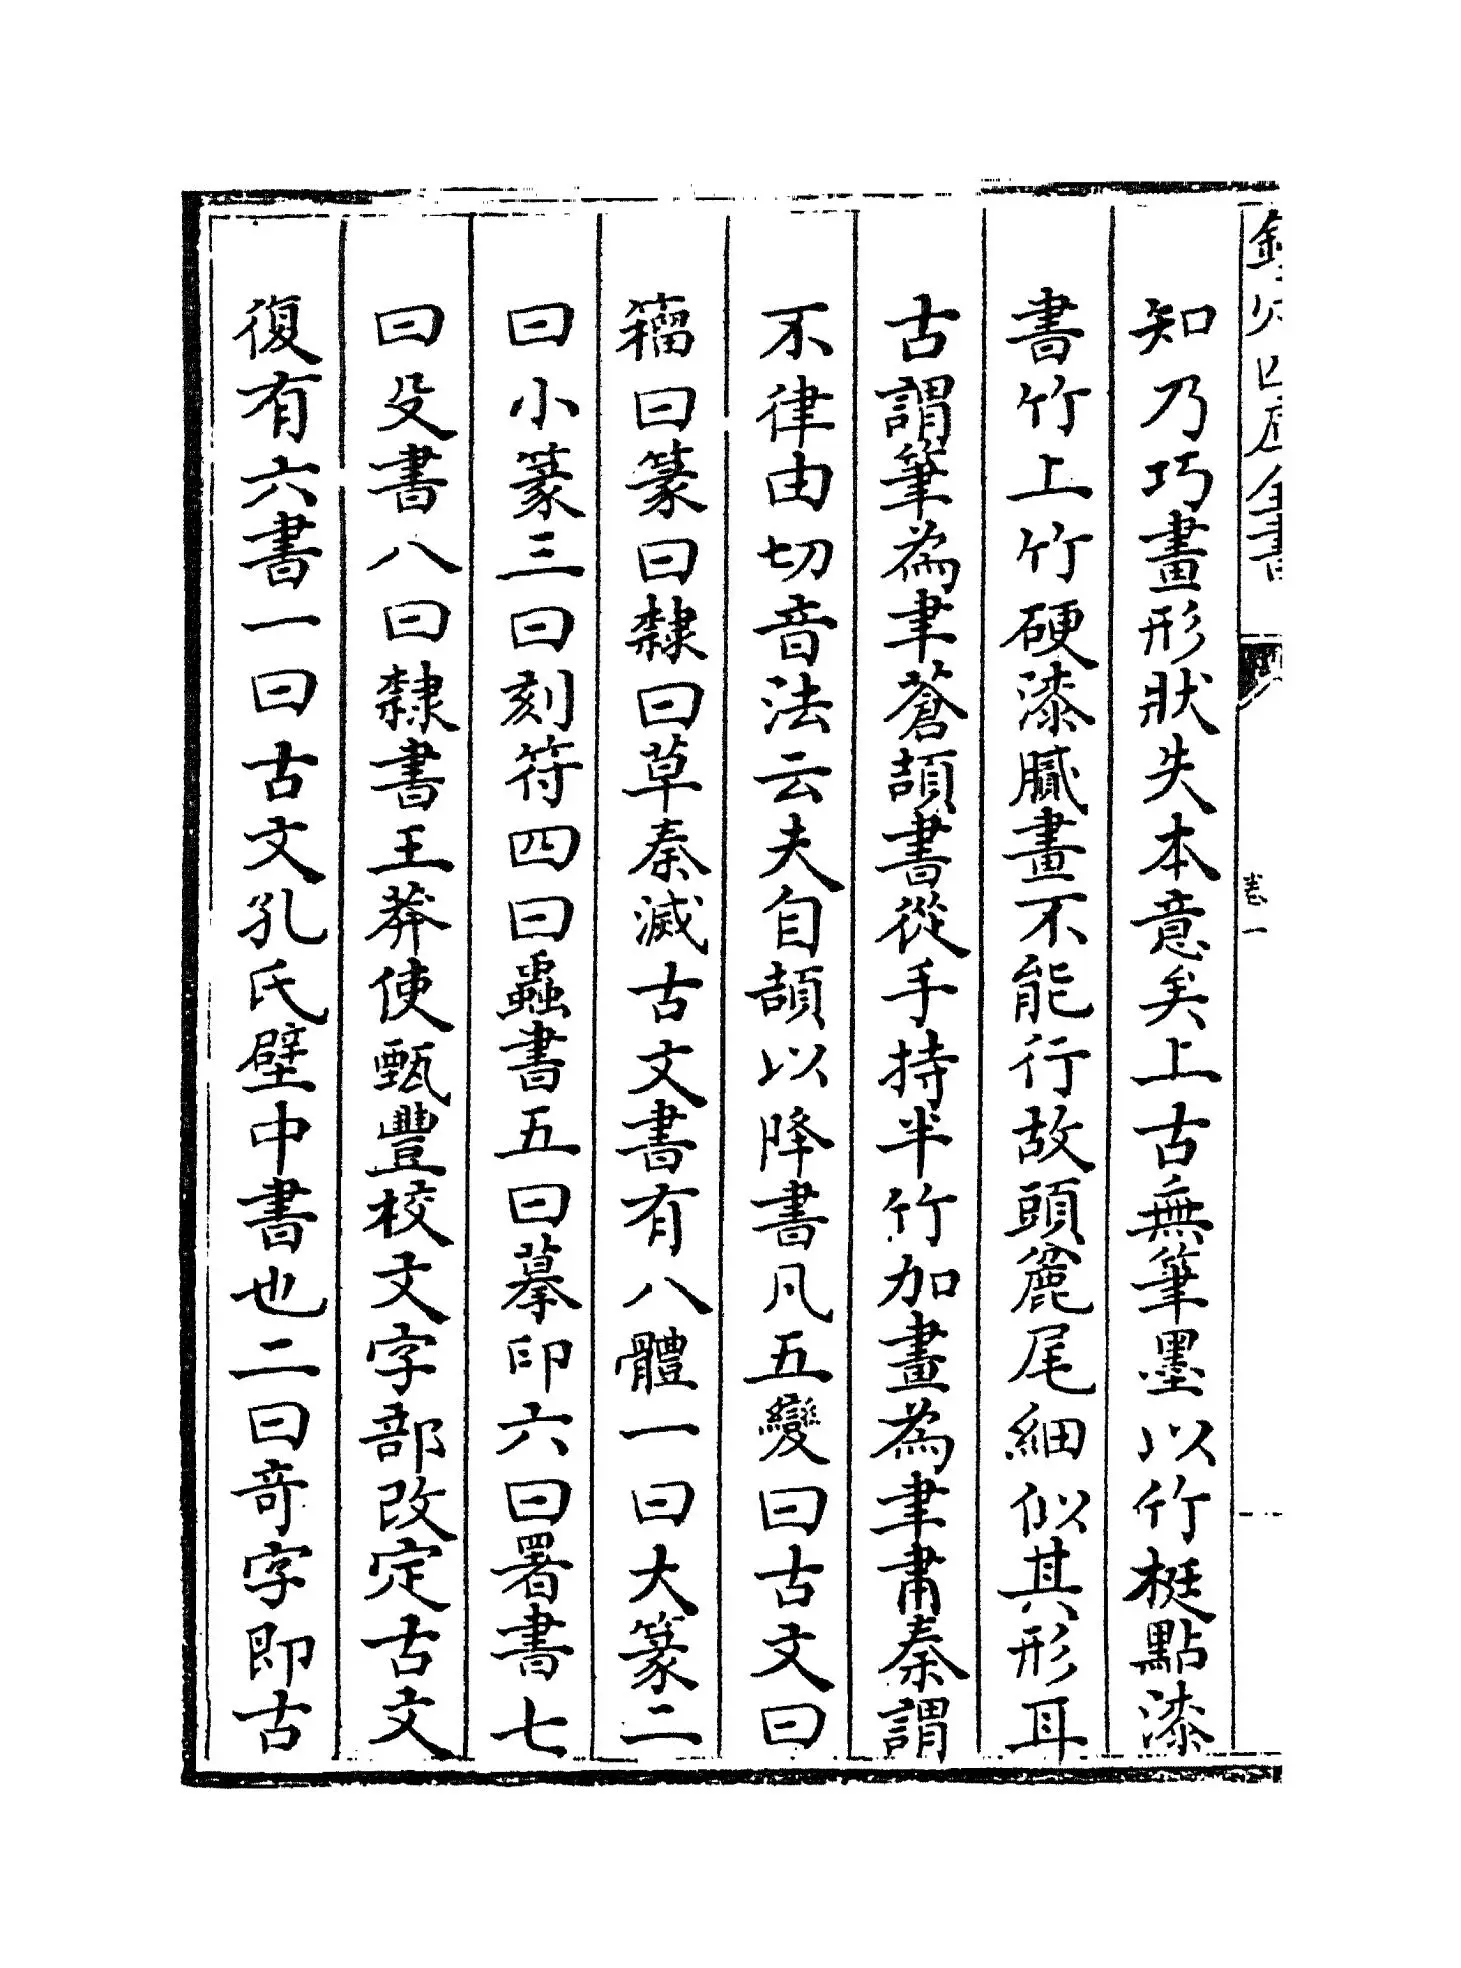 欽定四庫全書
卷一
知乃巧畫形狀失本意矣上古無筆墨以竹梃點漆
書竹上竹硬漆膩畫不能行故頭麄尾細似其形耳
古謂筆為聿蒼頡書從手持半竹加畫為聿秦謂
不律由切音法云夫自頡以降書凡五變曰古文曰
籀曰篆曰隸曰草秦滅古文書有八體一曰大篆二
曰小篆三曰刻符四曰蟲書五曰摹印六曰署書七
曰殳書八曰隸書王莽使甄豐校文字部改定古文
復有六書一曰古文孔氏壁中書也二曰奇字即古